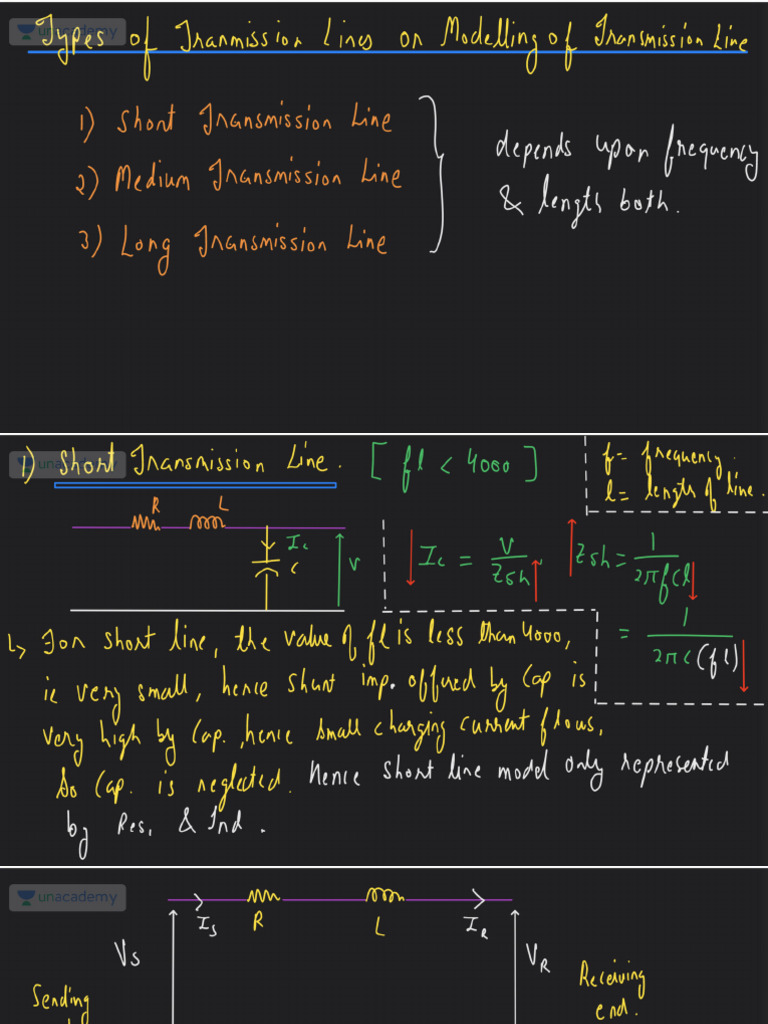 unacademy
Types of Tranmission Lines or Modelling of Transmission Line
1) Short Transmission Line
2) Medium Transmission Line
3) Long Transmission Line
depends upon frequency
& length both.
unacademy
1) Short Transmission Line. [fl < 4000]
f = frequency.
l = length of line.
R L
Ic
C
V
Ic = V/Zsh
Zsh = 1/2πfCl
= 1/2πC(fl)
↳ For short line, the value of fl is less than 4000,
ie very small, hence shunt imp. offured by Cap is
very high by Cap., hence small charging current flows,
So Cap. is neglected. Hence short line model only represented
by Res. & Ind.
unacademy
Is R L IR
Vs
VR
Sending
Receiving
end.